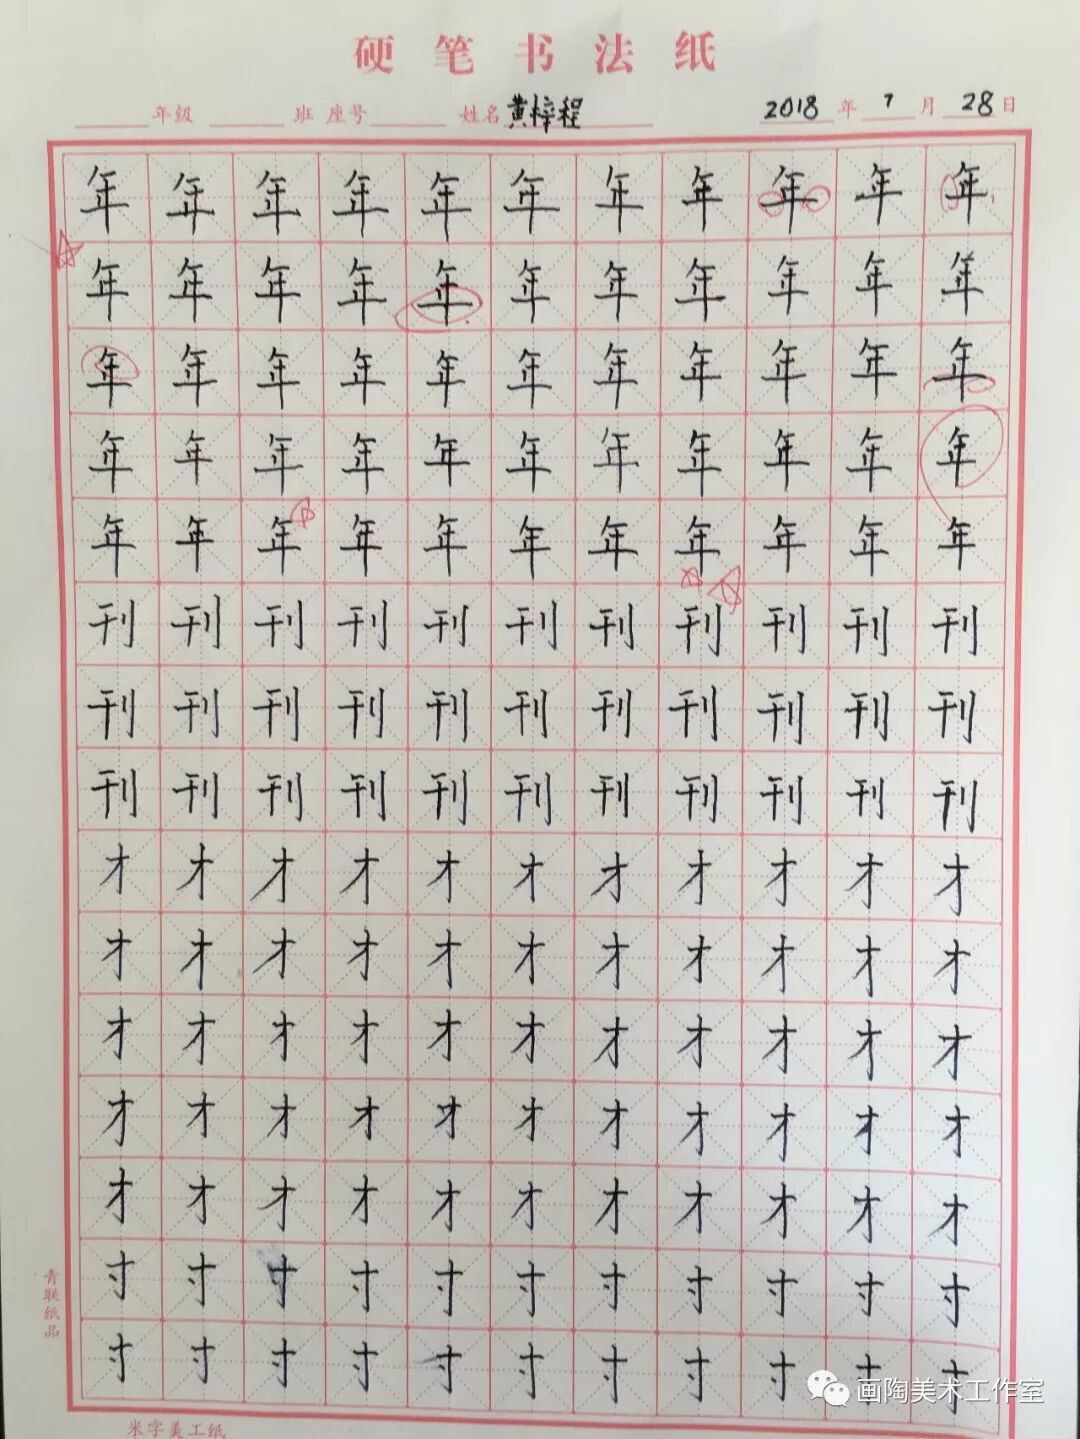 硬笔书法纸
年级 班 座号 姓名 黄梓程 2018年7月28日
年年年年年年年年年年年
年年年年年年年年年年年
年年年年年年年年年年年
年年年年年年年年年年年
年年年年年年年年年年年
刊刊刊刊刊刊刊刊刊刊刊
刊刊刊刊刊刊刊刊刊刊刊
刊刊刊刊刊刊刊刊刊刊刊
才才才才才才才才才才才
才才才才才才才才才才才
才才才才才才才才才才才
才才才才才才才才才才才
才才才才才才才才才才才
寸寸寸寸寸寸寸寸寸寸寸
寸寸寸寸寸寸寸寸寸寸寸
青联纸品
米字美工纸
画陶美术工作室